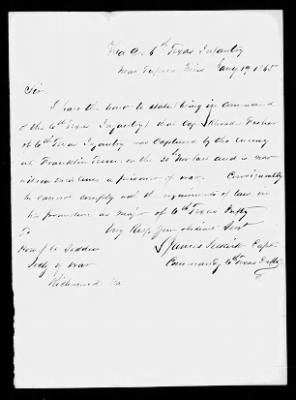 Hd Qrs 6th Texas Infantry
Near Tupelo Miss Jany 19 1865
Sir
I have the honor to state (being in Command
of the 6th Texas Infantry) that Capt Rhoads Fisher
of 6th Texas Infantry was Captured by the enemy
at Franklin Tenn on the 30 Nov last and is now
within their lines a prisoner of war. Consequently
he cannot comply with the requirements of law in
his promotion as Major of 6th Texas Infty
To Very Resp Your obedient Servt
Hon J A Seddon Capt
Secty of War Commandg 6th Texas Infty
Richmond Va